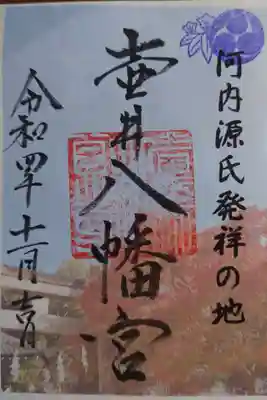 河内源氏発祥の地
壺井八幡宮
令和四年十一月吉日